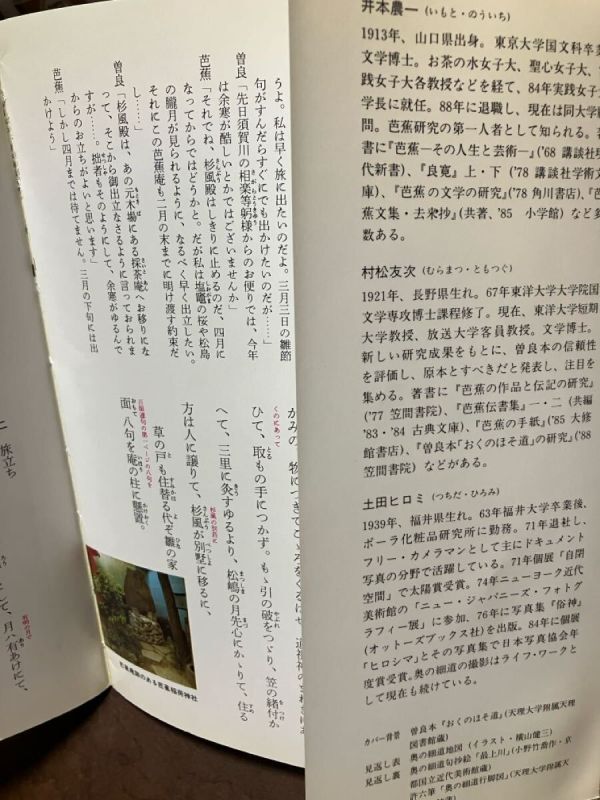 井本農一（いもと・のういち）
1913年、山口県出身。東京大学国文科卒業
文学博士。お茶の水女子大、聖心女子大、
践女子大各教授などを経て、84年実践女子大
学長に就任。88年に退職し、現在は同大学
問。芭蕉研究の第一人者として知られる。
書に『芭蕉―その人生と芸術―』('68 講談社
代新書)、『良寛』上・下('78 講談社学術文
庫)、『芭蕉の文学の研究』('78 角川書店)、『芭
蕉文集・去来抄』(共著、'85　小学館) など多
数ある。
村松友次（むらまつ・ともつぐ）
1921年、長野県生れ。67年東洋大学大学院国
文学専攻博士課程修了。現在、東洋大学短期
大学教授、放送大学客員教授。文学博士。
新しい研究成果をもとに、曽良本の信頼性
を評価し、原本とすべきだと発表し、注目を
集める。著書に『芭蕉の作品と伝記の研究』
('77 笠間書院)、『芭蕉伝書集』一・二(共編
'83・'84 古典文庫)、『芭蕉の手紙』('85 大修
館書店)、『曽良本「おくのほそ道」の研究』('88
笠間書院) などがある。
土田ヒロミ（つちだ・ひろみ）
1939年、福井県生れ。63年福井大学卒業後、
ポーラ化粧品研究所に勤務。71年退社し、
フリー・カメラマンとして主にドキュメント
写真の分野で活躍している。71年個展「自閉
空間」で太陽賞受賞。74年ニューヨーク近代
美術館の「ニュー・ジャパニーズ・フォトグ
ラフィー展」に参加、76年に写真集『俗神』
(オットーズブックス社)を出版。84年に個展
「ヒロシマ」とその写真集で日本写真協会年
度賞受賞。奥の細道の撮影はライフ・ワークと
して現在も続けている。
カバー背景　曽良本『おくのほそ道』(天理大学附属天理
図書館蔵)
見返し表　奥の細道地図 (イラスト・横山健三)
見返し裏　奥の細道句抄絵「最上川」(小野竹喬作・京
都国立近代美術館蔵)
許六筆「奥の細道行脚図」(天理大学附属天
うよ。私は早く旅に出たいのだよ。三月三日の雛節
句がすんだらすぐにでも出かけたいのだが……」
曽良「先日須賀川の相楽等躬様からのお便りでは、今年
は余寒が酷しいとかではございませんか」
芭蕉「それでね、杉風殿はしきりに止めるのだ、四月に
なってからではどうかと。だが私は塩竈の桜や松島
の朧月が見られるように、なるべく早く出立したい。
それにこの芭蕉庵も二月の末までに明け渡す約束だ
し……」
曽良「杉風殿は、あの元木場にある採荼庵へお移りにな
って、そこから御出立なさるように言っておられま
すが……。拙者もそのようにして、余寒がゆるんで
からのお立ちがよいと思います」
芭蕉「しかし四月までは待てません。三月の下旬には出
かけよう」
ひて、取もの手につかず。もゝ引の破をつゞり、笠の緒付か
へて、三里に灸すゆるより、松嶋の月先心にかゝりて、住る
方は人に譲りて、杉風が別墅に移るに、
草の戸も住替る代ぞ雛の家
面八句を庵の柱に懸置。
芭蕉庵跡のある芭蕉稲荷神社
旅立ち
月ハ有あけにて、